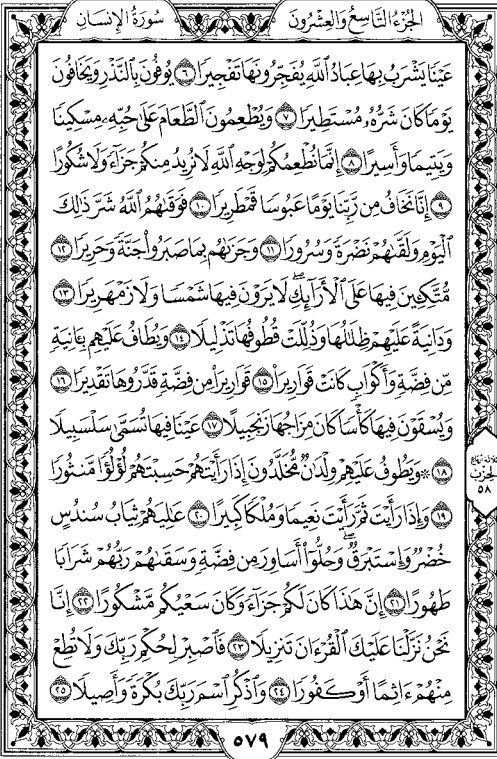 الجُزْءُ التَّاسِعُ وَالعِشْرُونَ سُورَةُ الإِنسَانِ
عَيْنًا يَشْرَبُ بِهَا عِبَادُ ٱللَّهِ يُفَجِّرُونَهَا تَفْجِيرًا ٦ يُوفُونَ بِٱلنَّذْرِ وَيَخَافُونَ
يَوْمًا كَانَ شَرُّهُۥ مُسْتَطِيرًا ٧ وَيُطْعِمُونَ ٱلطَّعَامَ عَلَىٰ حُبِّهِۦ مِسْكِينًا
وَيَتِيمًا وَأَسِيرًا ٨ إِنَّمَا نُطْعِمُكُمْ لِوَجْهِ ٱللَّهِ لَا نُرِيدُ مِنكُمْ جَزَآءً وَلَا شُكُورًا
٩ إِنَّا نَخَافُ مِن رَّبِّنَا يَوْمًا عَبُوسًا قَمْطَرِيرًا ١٠ فَوَقَىٰهُمُ ٱللَّهُ شَرَّ ذَٰلِكَ
ٱلْيَوْمِ وَلَقَّىٰهُمْ نَضْرَةً وَسُرُورًا ١١ وَجَزَىٰهُم بِمَا صَبَرُوا۟ جَنَّةً وَحَرِيرًا ١٢
مُّتَّكِـِٔينَ فِيهَا عَلَى ٱلْأَرَآئِكِ ۖ لَا يَرَوْنَ فِيهَا شَمْسًا وَلَا زَمْهَرِيرًا ١٣
وَدَانِيَةً عَلَيْهِمْ ظِلَٰلُهَا وَذُلِّلَتْ قُطُوفُهَا تَذْلِيلًا ١٤ وَيُطَافُ عَلَيْهِم بِـَٔانِيَةٍ
مِّن فِضَّةٍ وَأَكْوَابٍ كَانَتْ قَوَارِيرَا۠ ١٥ قَوَارِيرَا۟ مِن فِضَّةٍ قَدَّرُوهَا تَقْدِيرًا ١٦
وَيُسْقَوْنَ فِيهَا كَأْسًا كَانَ مِزَاجُهَا زَنجَبِيلًا ١٧ عَيْنًا فِيهَا تُسَمَّىٰ سَلْسَبِيلًا
١٨ ۞ وَيَطُوفُ عَلَيْهِمْ وِلْدَٰنٌ مُّخَلَّدُونَ إِذَا رَأَيْتَهُمْ حَسِبْتَهُمْ لُؤْلُؤًا مَّنثُورًا
١٩ وَإِذَا رَأَيْتَ ثَمَّ رَأَيْتَ نَعِيمًا وَمُلْكًا كَبِيرًا ٢٠ عَٰلِيَهُمْ ثِيَابُ سُندُسٍ
خُضْرٌ وَإِسْتَبْرَقٌ ۖ وَحُلُّوٓا۟ أَسَاوِرَ مِن فِضَّةٍ وَسَقَىٰهُمْ رَبُّهُمْ شَرَابًا
طَهُورًا ٢١ إِنَّ هَٰذَا كَانَ لَكُمْ جَزَآءً وَكَانَ سَعْيُكُم مَّشْكُورًا ٢٢ إِنَّا
نَحْنُ نَزَّلْنَا عَلَيْكَ ٱلْقُرْءَانَ تَنزِيلًا ٢٣ فَٱصْبِرْ لِحُكْمِ رَبِّكَ وَلَا تُطِعْ
مِنْهُمْ ءَاثِمًا أَوْ كَفُورًا ٢٤ وَٱذْكُرِ ٱسْمَ رَبِّكَ بُكْرَةً وَأَصِيلًا ٢٥
الحِزْب
٥٨
٥٧٩